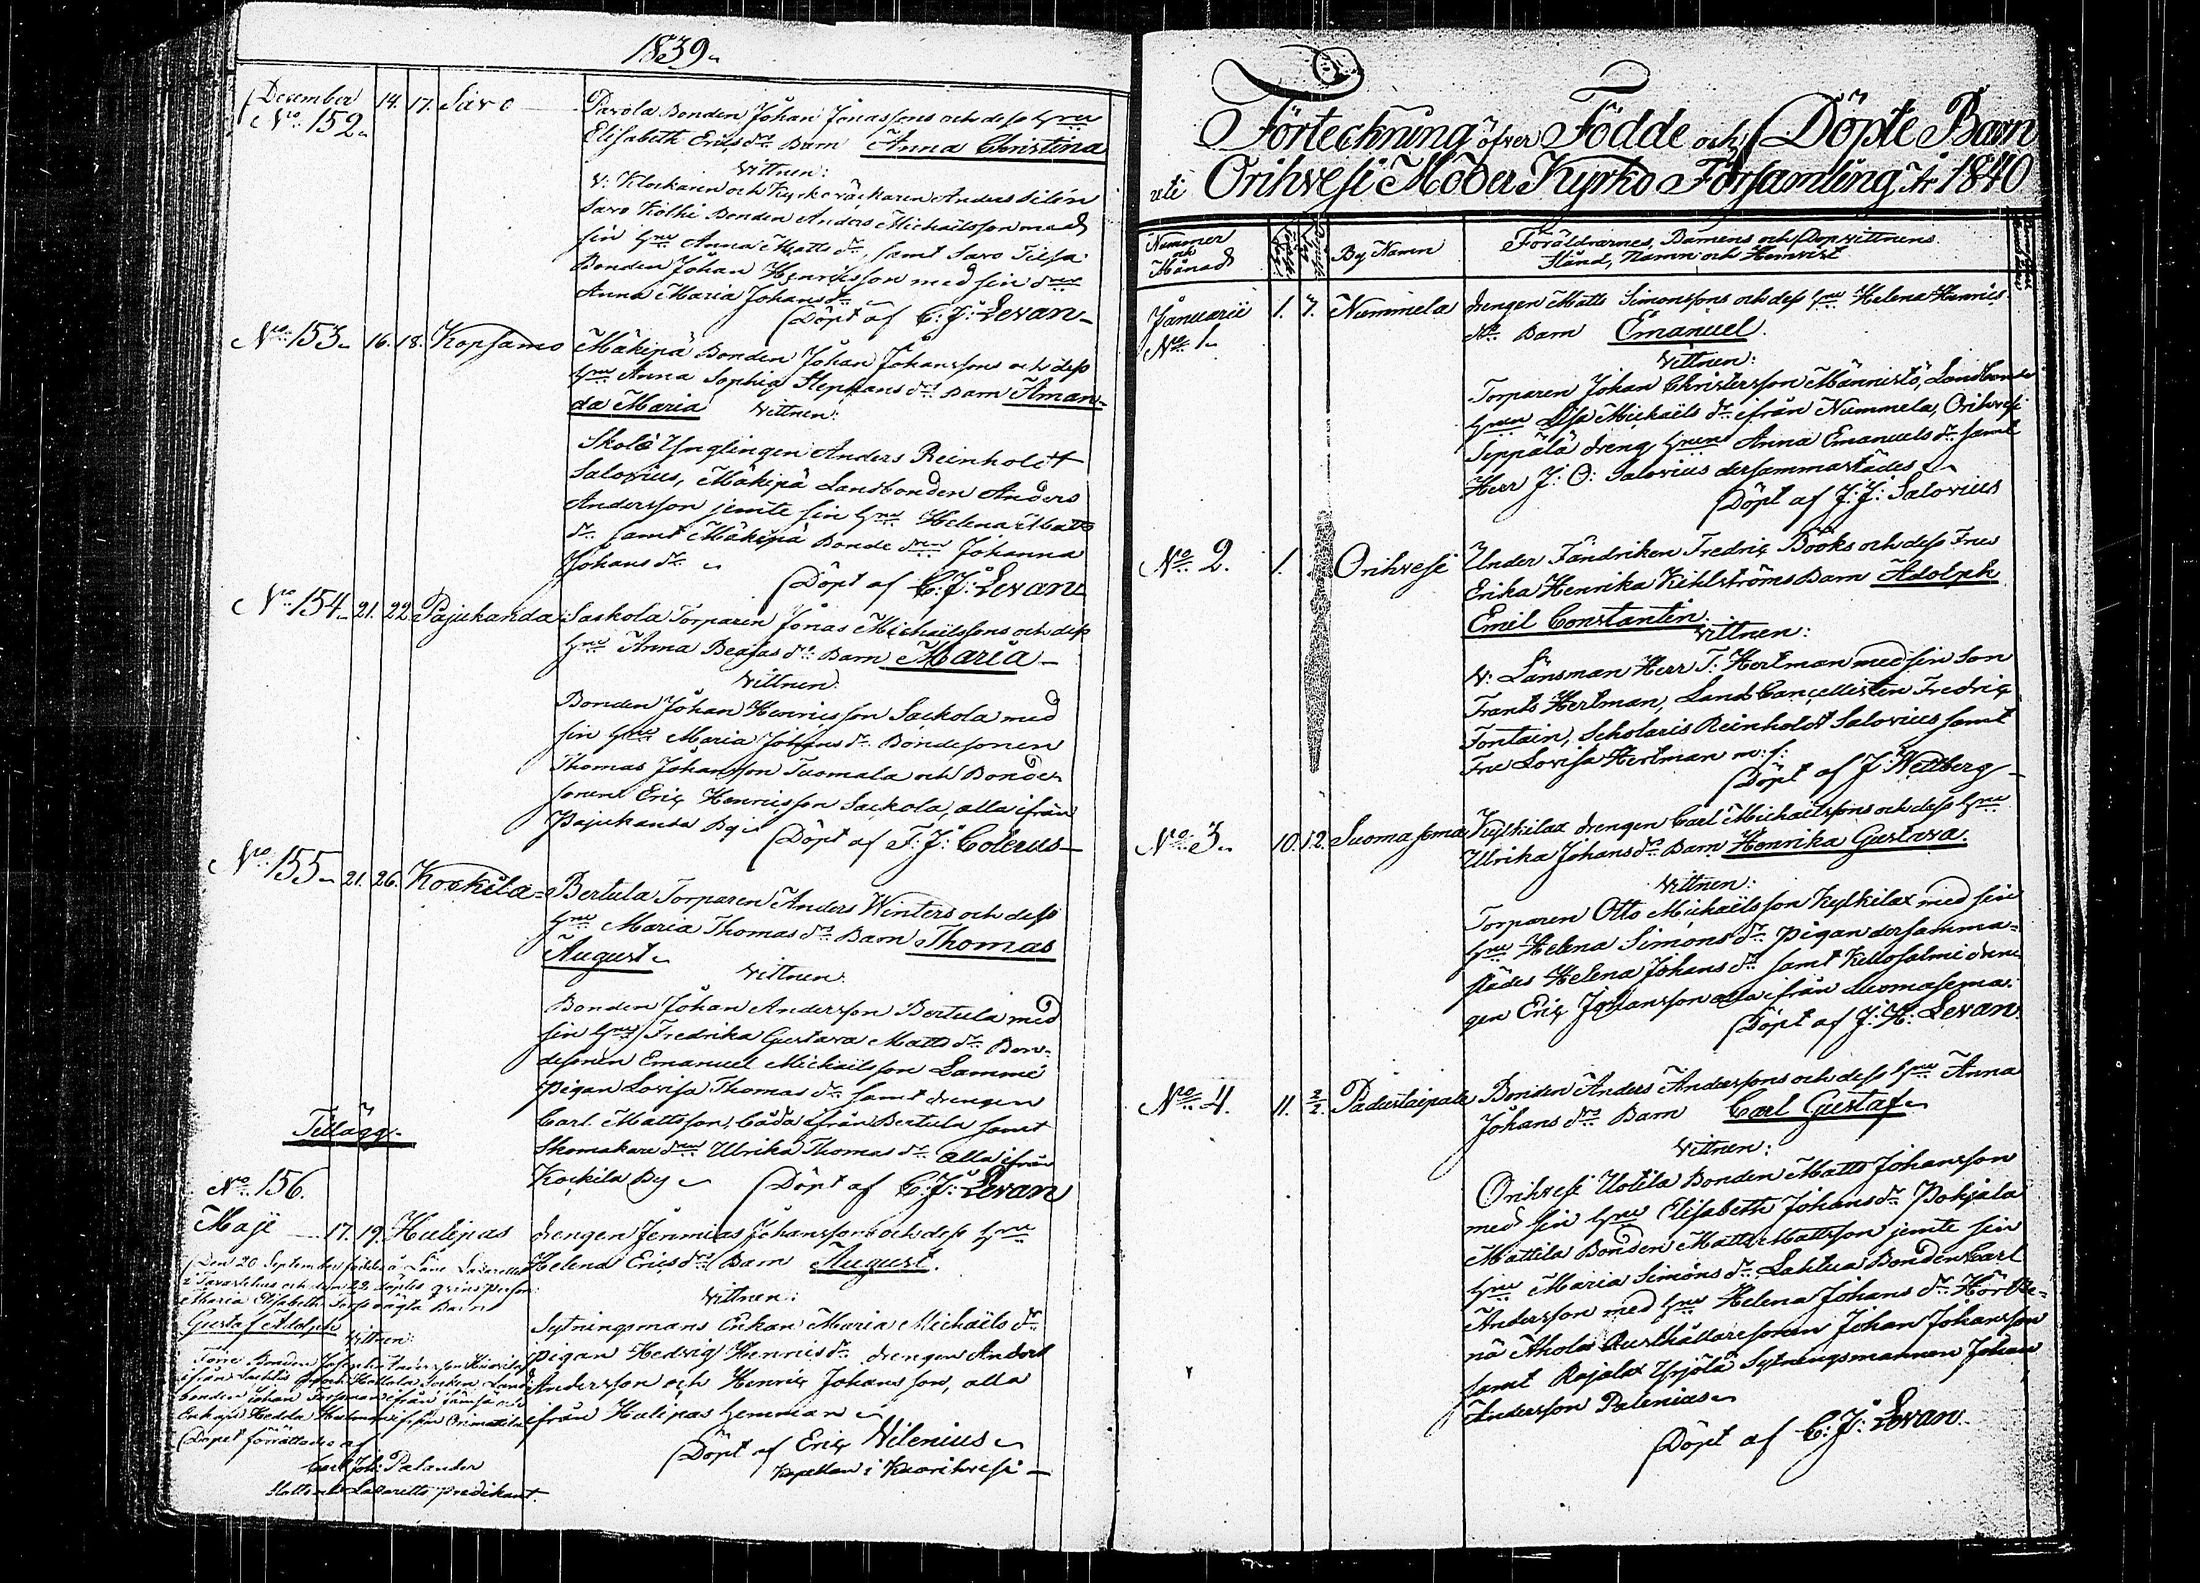 1839
December 14. 17. Savo Pavola Bonden Johan Jonassons och dess Hru
No 152 Elisabeth Ericsdrs Barn Anna Christina
Vittnen:
V: Klockaren och Kyrkeväckaren Anders Silén
Savo Kolhi Bonden Anders Michaëlsson med
sin Hru Anna Matts dr, samt Savo
Bonden Johan Henricsson med sin Hru
Anna Maria Johans dr
Döpt af C: J: Levan
No 153 16. 18. Kopsamo Mäkipä Bonden Johan Johanssons och dess
Hru Anna Sophia Stephans drs Barn Aman-
da Maria Vittnen:
Skole Ynglingen Anders Reinholdt
Salovius, Mäkipä Landbonden Anders
Andersson jemte sin Hru Helena Matts
dr samt Mäkipä Bonde Johanna
Johans dr
Döpt af C: J: Levan
No 154 21. 22. Pajukanda Sackola Torparen Jonas Michaëlssons och dess
Hru Anna Beatas drs Barn Maria
Vittnen:
Bonden Johan Henricsson Sackola med
sin Hru Maria Johans dr Bondesonen
Thomas Johansson Tuomala och Bonde
sonen Eric Henricsson Sackola, alla ifrån
Pajukanda By Döpt af F: J: Colerus
No 155 21. 26. Kockila Bertula Torparen Anders Winters och dess
Hru Maria Thomas drs Barn Thomas
August
Vittnen:
Bonden Johan Andersson Bertula med
sin Hru Fredrika Gustava Matts dr Bon-
desonen Emanuel Michaëlsson Lammi
pigan Lovisa Thomas dr samt drengen
Carl Mattsson, båda ifrån Bertula samt
Skomakare Ulrika Thomas dr alla ifrån
Kockila By Döpt af C: J: Levan
Tillägg
No 156.
Maji 17. 19. Hulipas drengen Jeremias Johanssons och dess Hru
Helena Erics drs Barn August.
Vittnen:
Sytningsmans Enkan Maria Michaëls dr
pigan Hedvig Henrics dr drengen Anders
Andersson och Henric Johansson, alla
ifrån Hulipas hemman
Döpt af Eric Vilenius
Kapellan i Kuorihvesi
Den 20 September föddes å Läns Lazarettet
i Tavastehus och den 22 döptes
Maria Elisabeth Barn
Gustaf Adolph
Vittnen:
Bonden Josephi Andersson
ifrån Lachtis Hollola Socken Land-
bonden Johan ifrån Jämsä och
Enkan Hedda ifrån Orimattila
Döpet förrättades af
Carl Joh: Palander
Slotts och Lazaretts predikant.
Förteckning öfver Födde och Döpte Barn
uti Orihvesi Moder Kyrko Församling År 1840
Nummer och Månad By Namn Föräldrarnes, Barnens och Dopvittnens
Stånd, Namn och Hemvist
Januarii 1. 7. Nummela drengen Matts Simonssons och dess Hru Helena Henrics
No 1 drs Barn Emanuel.
Vittnen:
Torparen Johan Christersson Männistö, Landbonde
Hrun Lisa Michaëls dr ifrån Nummela, Orihvesi
Seppälä dreng Hrun Anna Emanuels dr samt
Herr J: O: Salovius dersammastädes
Döpt af J: J: Salovius
No 2. 1. Orihvesi Under Fändriken Fredric Bööks och dess Fru
Erika Henrika Kihlströms Barn Adolph
Emil Constantin.
Vittnen:
V: Länsman Herr T: Hertman med sin Son
Frants Hertman, Lands Cancellisten Fredric
Fontain, Scholaris Reinholdt Salovius samt
Fru Lovisa Hertman m: f:
Döpt af J: Wettberg
No 3. 10. 12. Suomasema Kylkilax drengen Carl Michaëlssons och dess Hru
Ulrika Johans drs Barn Henrika Gustava.
Vittnen:
Torparen Otto Michaëlsson Kylkilax med sin
Hru Helena Simons dr pigan dersamma-
städes Helena Johans dr samt Kellosalmi dren-
gen Eric Johansson alla ifrån Suomasema.
Döpt af J: H: Levan.
No 4. 11. 2/2. Padustaipale Bonden Anders Anderssons och dess Hru Anna
Johans drs Barn Carl Gustaf
Vittnen:
Orihvesi Uotila Bonden Matts Johansson
med sin Hru Elisabeth Johans dr Pohjala
Mattila Bonden Matts Mattsson jemte sin
Hru Maria Simons dr Lahtua Bonden Carl
Andersson med Hru Helena Johans dr
nä Ahola Rusthållaresonen Johan Johansson
samt Rajalax Yrjölä Sytningsmannen Johan
Andersson Palenius
Döpt af C: J: Levan.